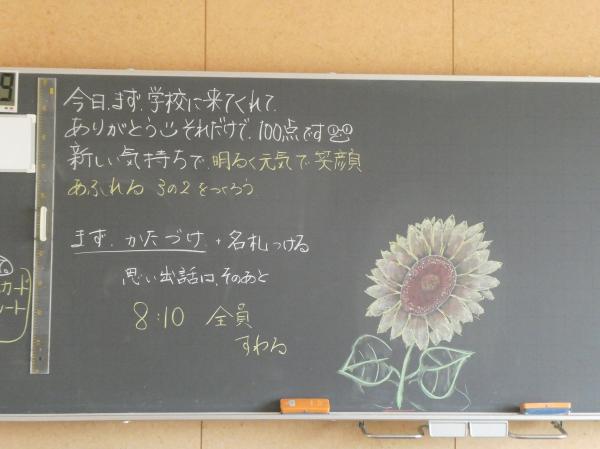 今日、まず、学校に来てくれて、
ありがとう それだけで、100点です
新しい気持ちで、明るく元気で笑顔
あふれる 3の2をつくろう
まず、かたづけ + 名札つける
思い出話は、そのあと
8:10 全員
すわる
9
カード
ート